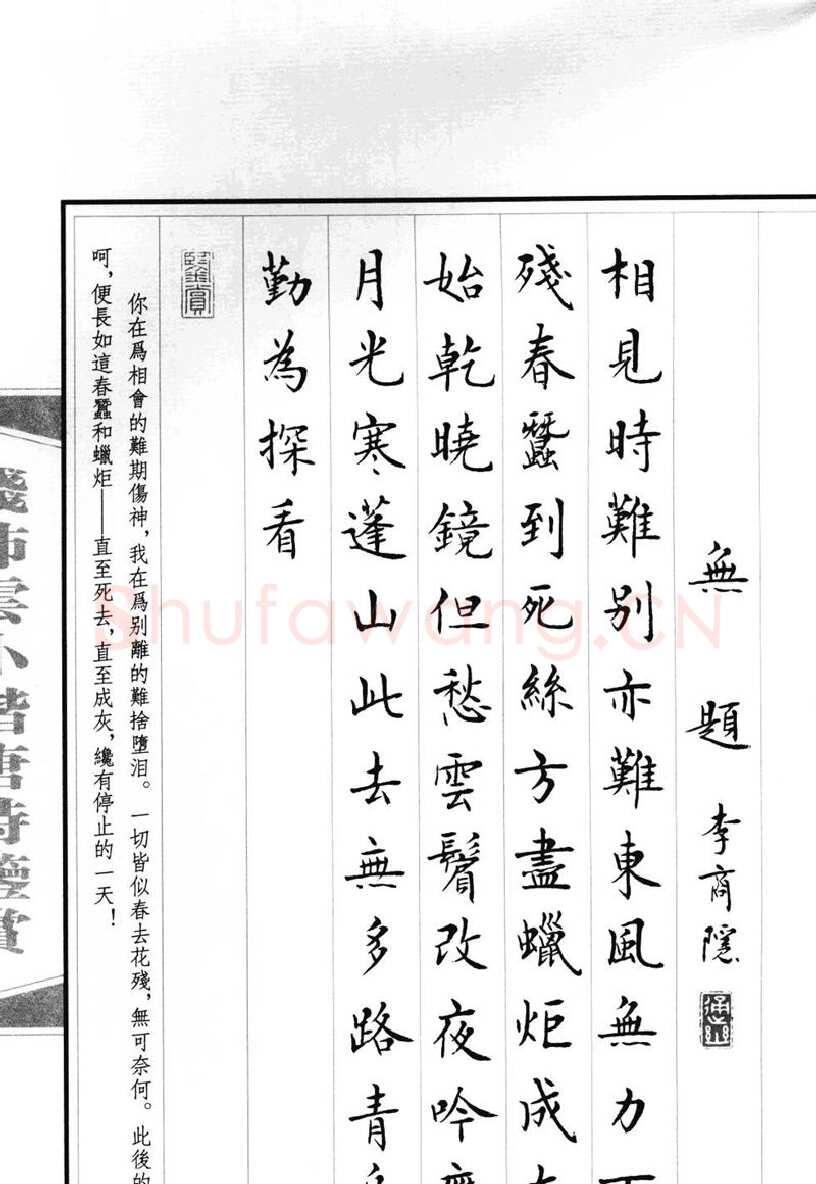 無題 李商隱
相見時難别亦難東風無力
殘春蠶到死絲方盡蠟炬成
始乾曉鏡但愁雲鬢改夜吟
月光寒蓬山此去無多路青
勤為探看
鑒賞
你在爲相會的難期傷神，我在爲别離的難捨墮泪。一切皆似春去花殘，無可奈何。此後的
呵，便長如這春蠶和蠟炬——直至死去，直至成灰，纔有停止的一天！
Shufawang.CN